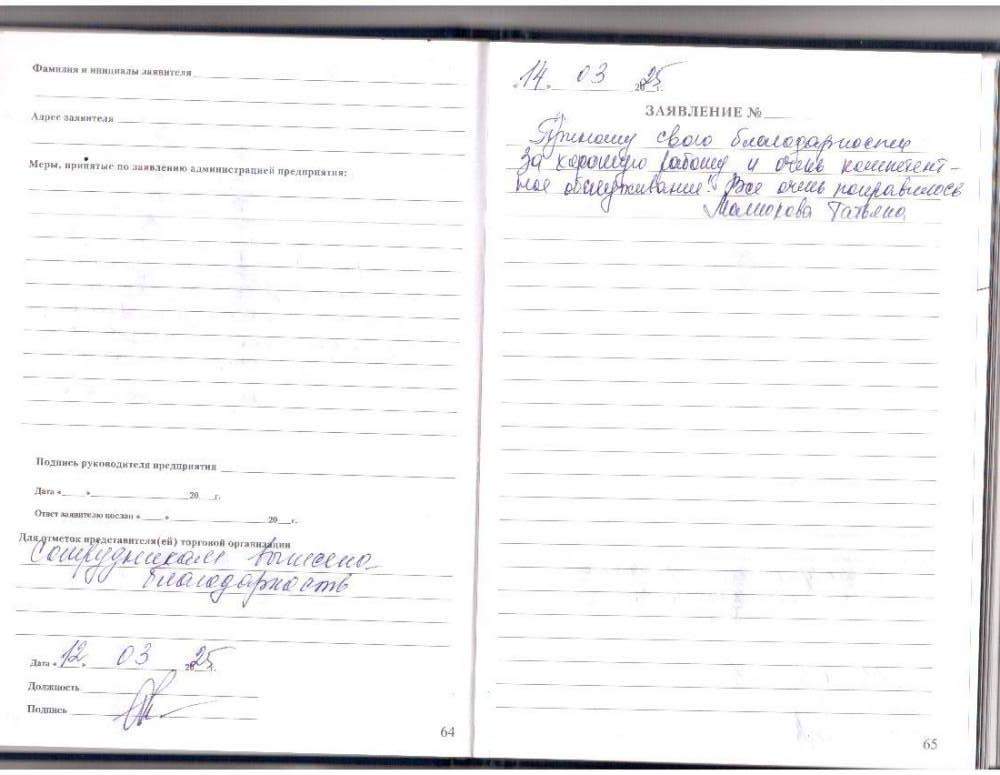 Фамилия и инициалы заявителя
Адрес заявителя
Меры, принятые по заявлению администрацией предприятия:
Подпись руководителя предприятия
Дата « » 20 г.
Ответ заявителю послан « » 20 г.
Для отметок представителя(ей) торговой организации
Сотрудникам вынесена
благодарность
Дата «12» 03 2025 г.
Должность
Подпись
64
«14» 03 2025 г.
ЗАЯВЛЕНИЕ №
свою благодарность
За хорошую работу и очень компетент-
ное обслуживание! Все очень понравилось
Татьяна
65